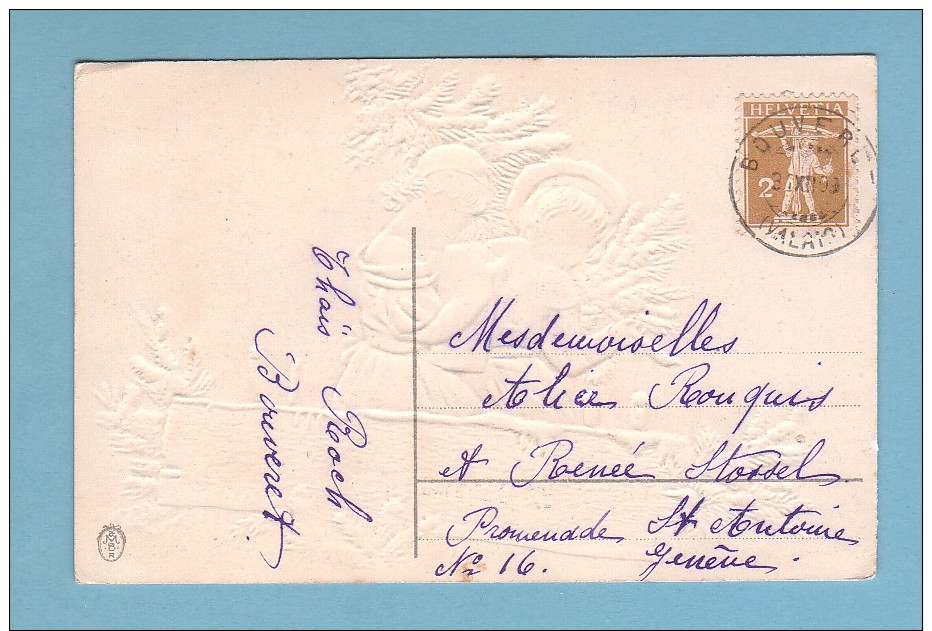 HELVETIA
2
BOUVERET
(VALAIS)
Thaïs Roch
Bouveret.
Mesdemoiselles
Alice Rouquis
et Renée Stossel
Promenade St Antoine
No 16. Genève.